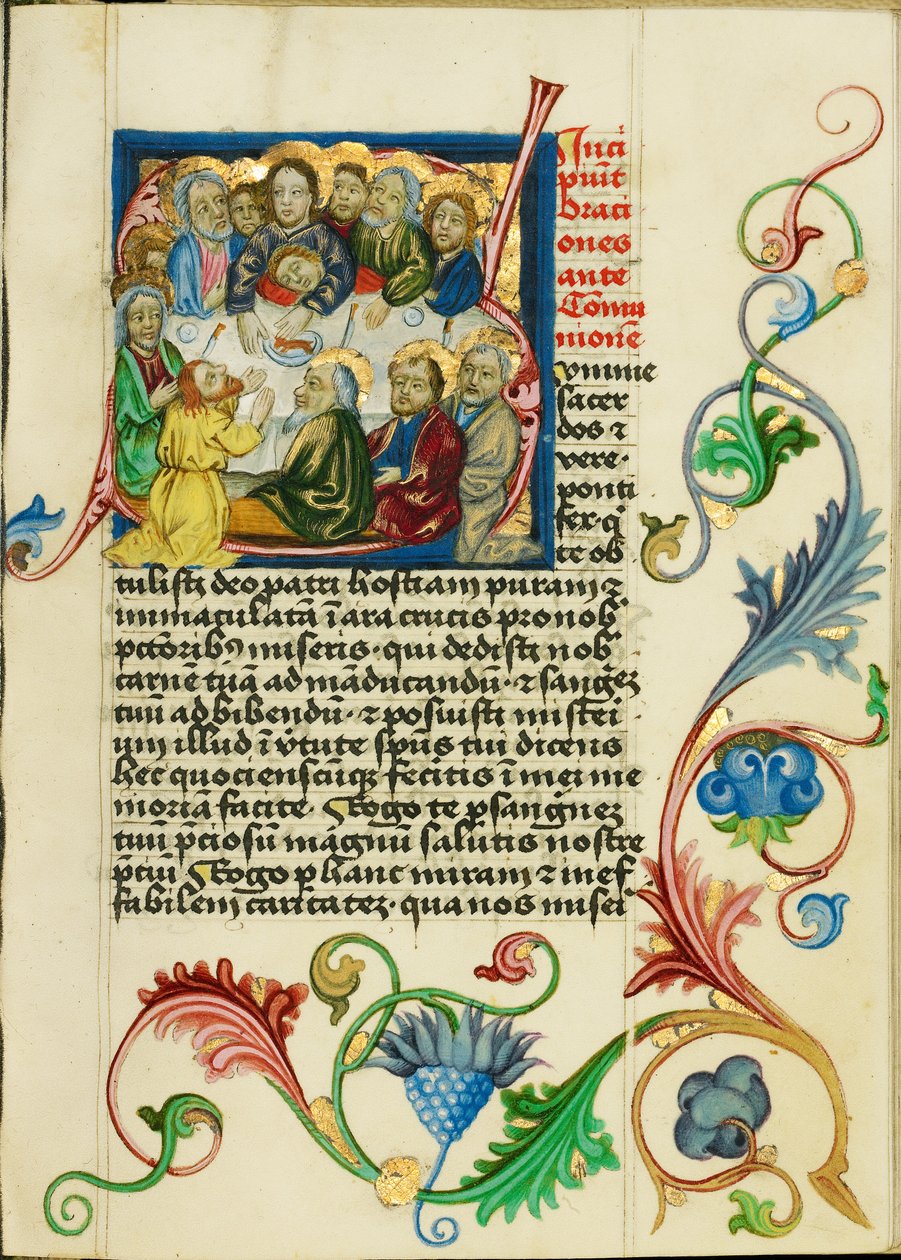 Inci
piūt
Oraci
ones
ante
Cōmu
nionē
omme
sacer
dos ⁊
vere·
ponti
fex· q̇
te ob
tulisti deo patri hostiam puram ⁊
immaculatā ī ara crucis pro nob̾
pctōribꝯ miseris· qui dedisti nob̾
carnē tuā ad māducandū· ⁊ sangꝫ
tuū ad bibendū· ⁊ posuisti mistei
um illud ī v̾tute sp̄us tui dicens
hec quocienscūqꝫ fecitis ī mei me
moriā facite· Rogo te ꝑ sangnēꝫ
tuū p̄ciosū magnū salutis nostre
p̄ciū Rogo ꝑ hanc miram ⁊ inef
fabilem caritateꝫ· qua nos misei